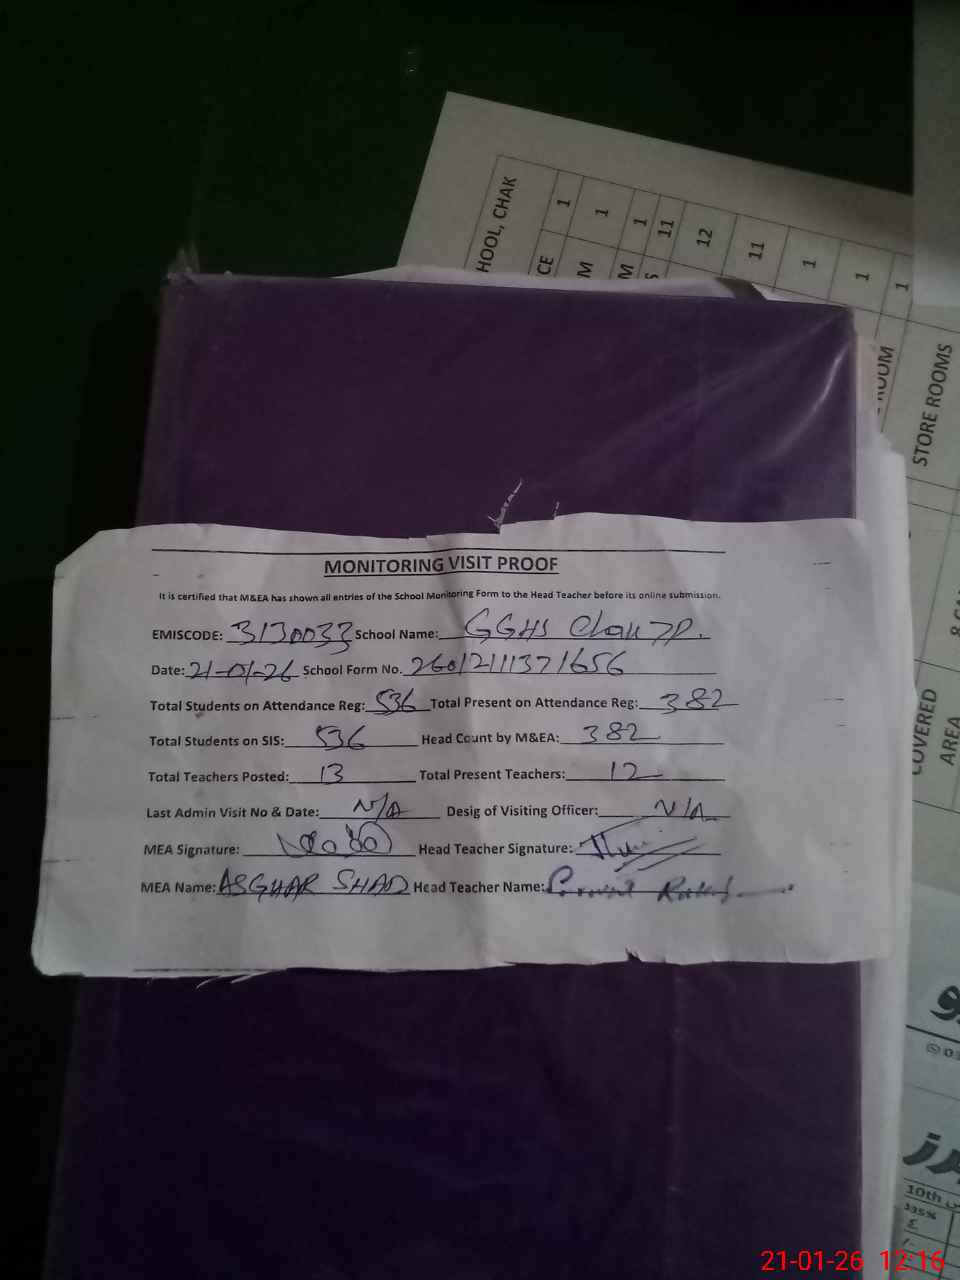 HOOL, CHAK
CE 1
M 1
M 1
S 11
12
11
1
1
ROOM 1
STORE ROOMS
COVERED
AREA
MONITORING VISIT PROOF
It is certified that M&EA has shown all entries of the School Monitoring Form to the Head Teacher before its online submission.
EMISCODE: 3130033 School Name: GGHS Chak 7P.
Date: 21-01-26 School Form No. 26012111371656
Total Students on Attendance Reg: 536 Total Present on Attendance Reg: 382
Total Students on SIS: 536 Head Count by M&EA: 382
Total Teachers Posted: 13 Total Present Teachers: 12
Last Admin Visit No & Date: N/A Desig of Visiting Officer: N/A
MEA Signature: Head Teacher Signature:
MEA Name: ASGHAR SHAD Head Teacher Name:
10th
21-01-26 12:16